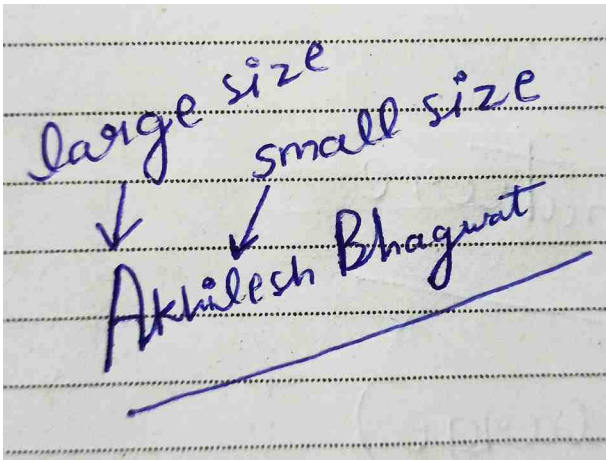 large size
small size
Akhilesh Bhagwat